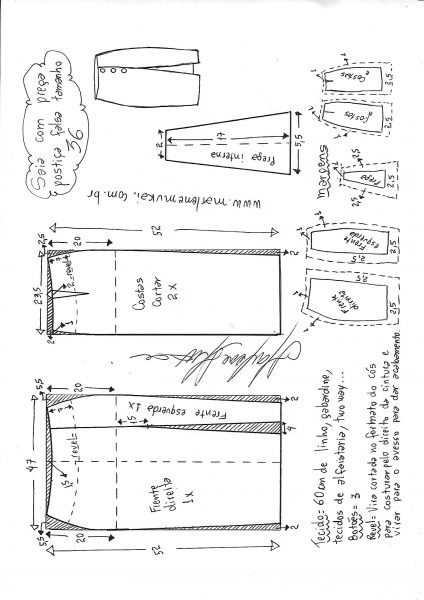 Saia com prega
postiça falsa tamanho
36
www.marlenemukai.com.br
2
17
5,5
Prega interna
margens
1
Costas
2,5
1
Costas
2,5
2,5
1
Prega
2,5
1
Frente
esquerda
2,5
1
Frente
direita
2,5
2,5
52
2,5
20
23,5
7
2
revel
2
1
Costas
cortar
2x
2
47
5,5
20
7
revel
1,5
Frente esquerda 1x
15
4
2
Frente
direita
1x
5,5
20
52
2
Tecido = 60cm de linho, gabardine,
tecidos de alfaiataria, two way...
Botões = 3
Revel = Vira cortada no formato do cós
para costurar pelo direito da cintura e
virar para o avesso para dar acabamento.